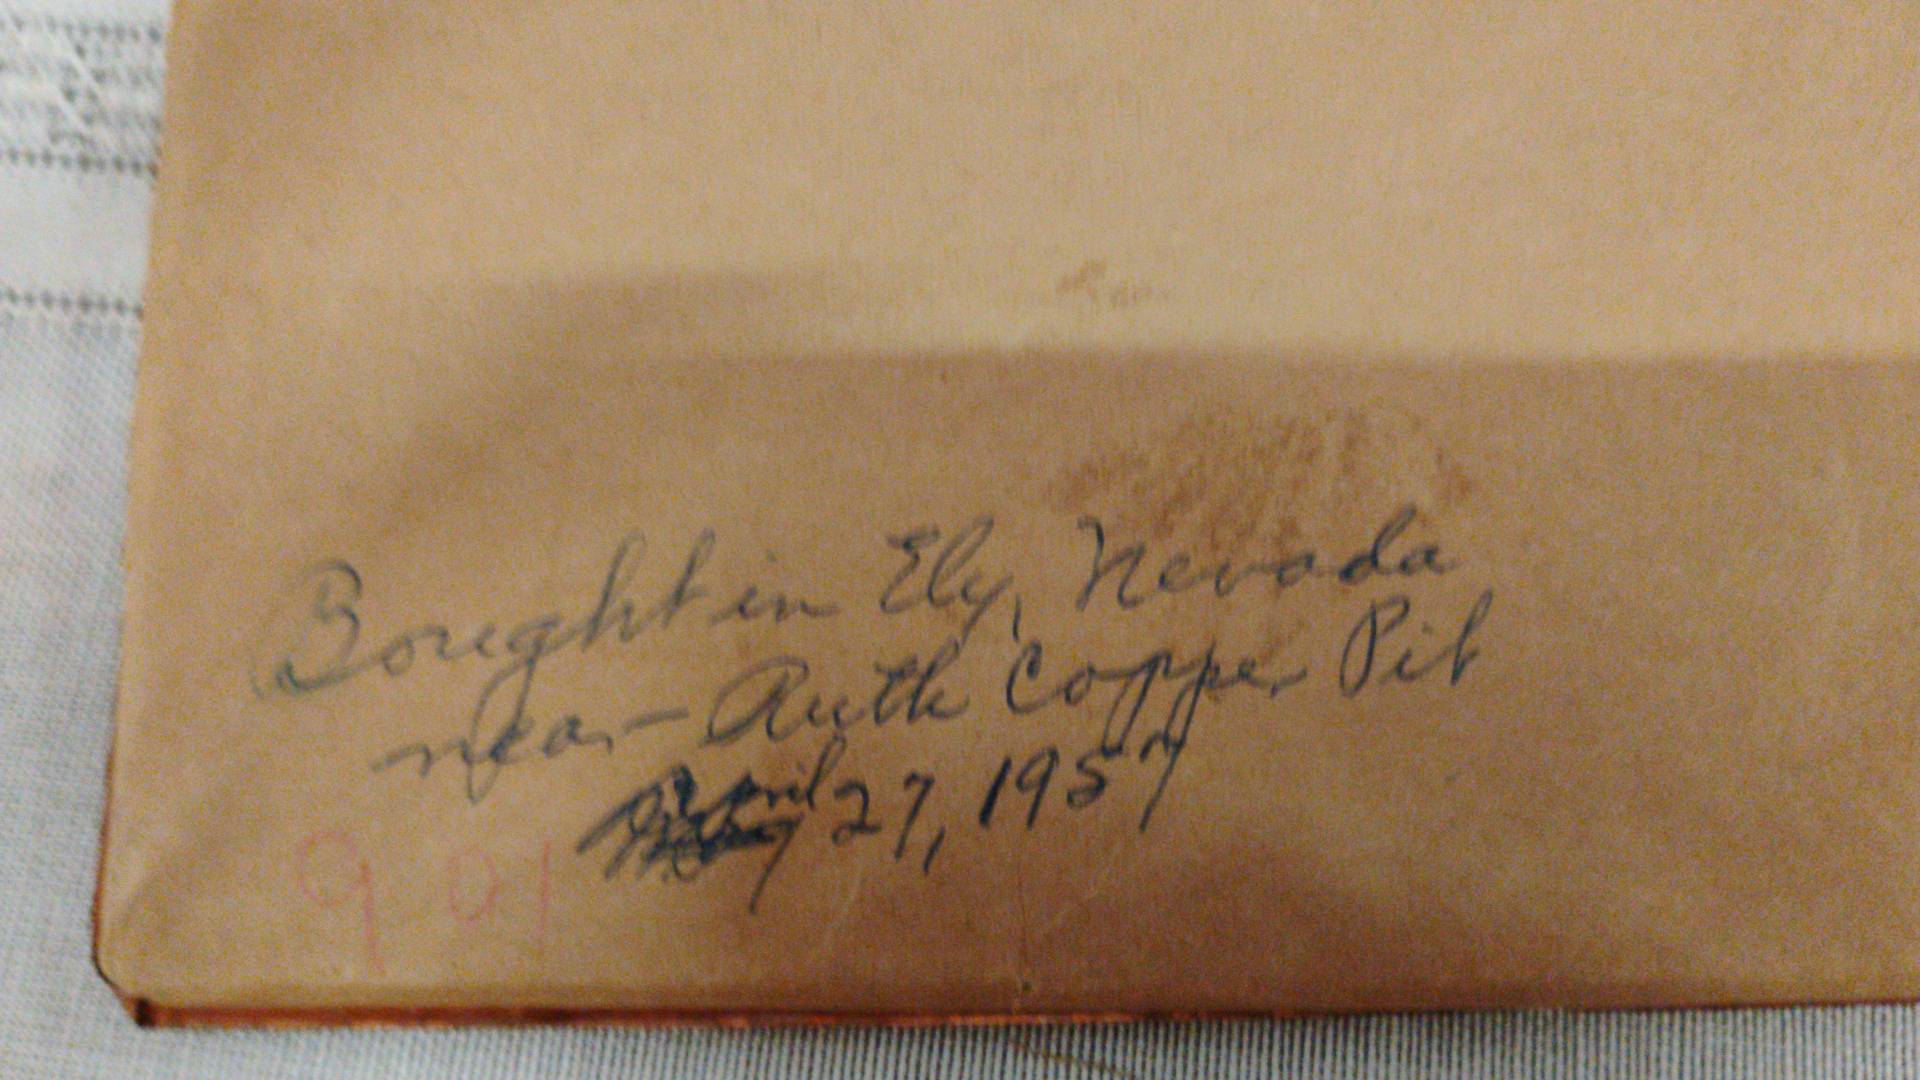 Bought in Ely, Nevada
near - Ruth Copper Pit
April 27, 1957
901